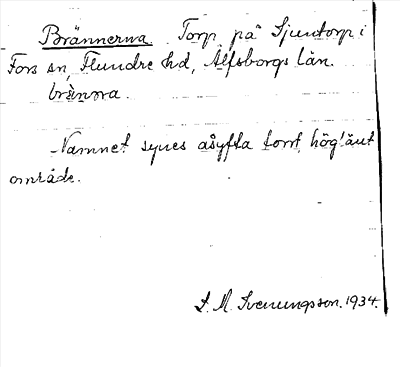 Brännerna. Torp på Sjuntorp i
Fors sn, Flundre hd, Älfsborgs län.
brènɷra.
Namnet synes åsyfta torrt, högläut
område.
S. M. Svenungsson. 1934.